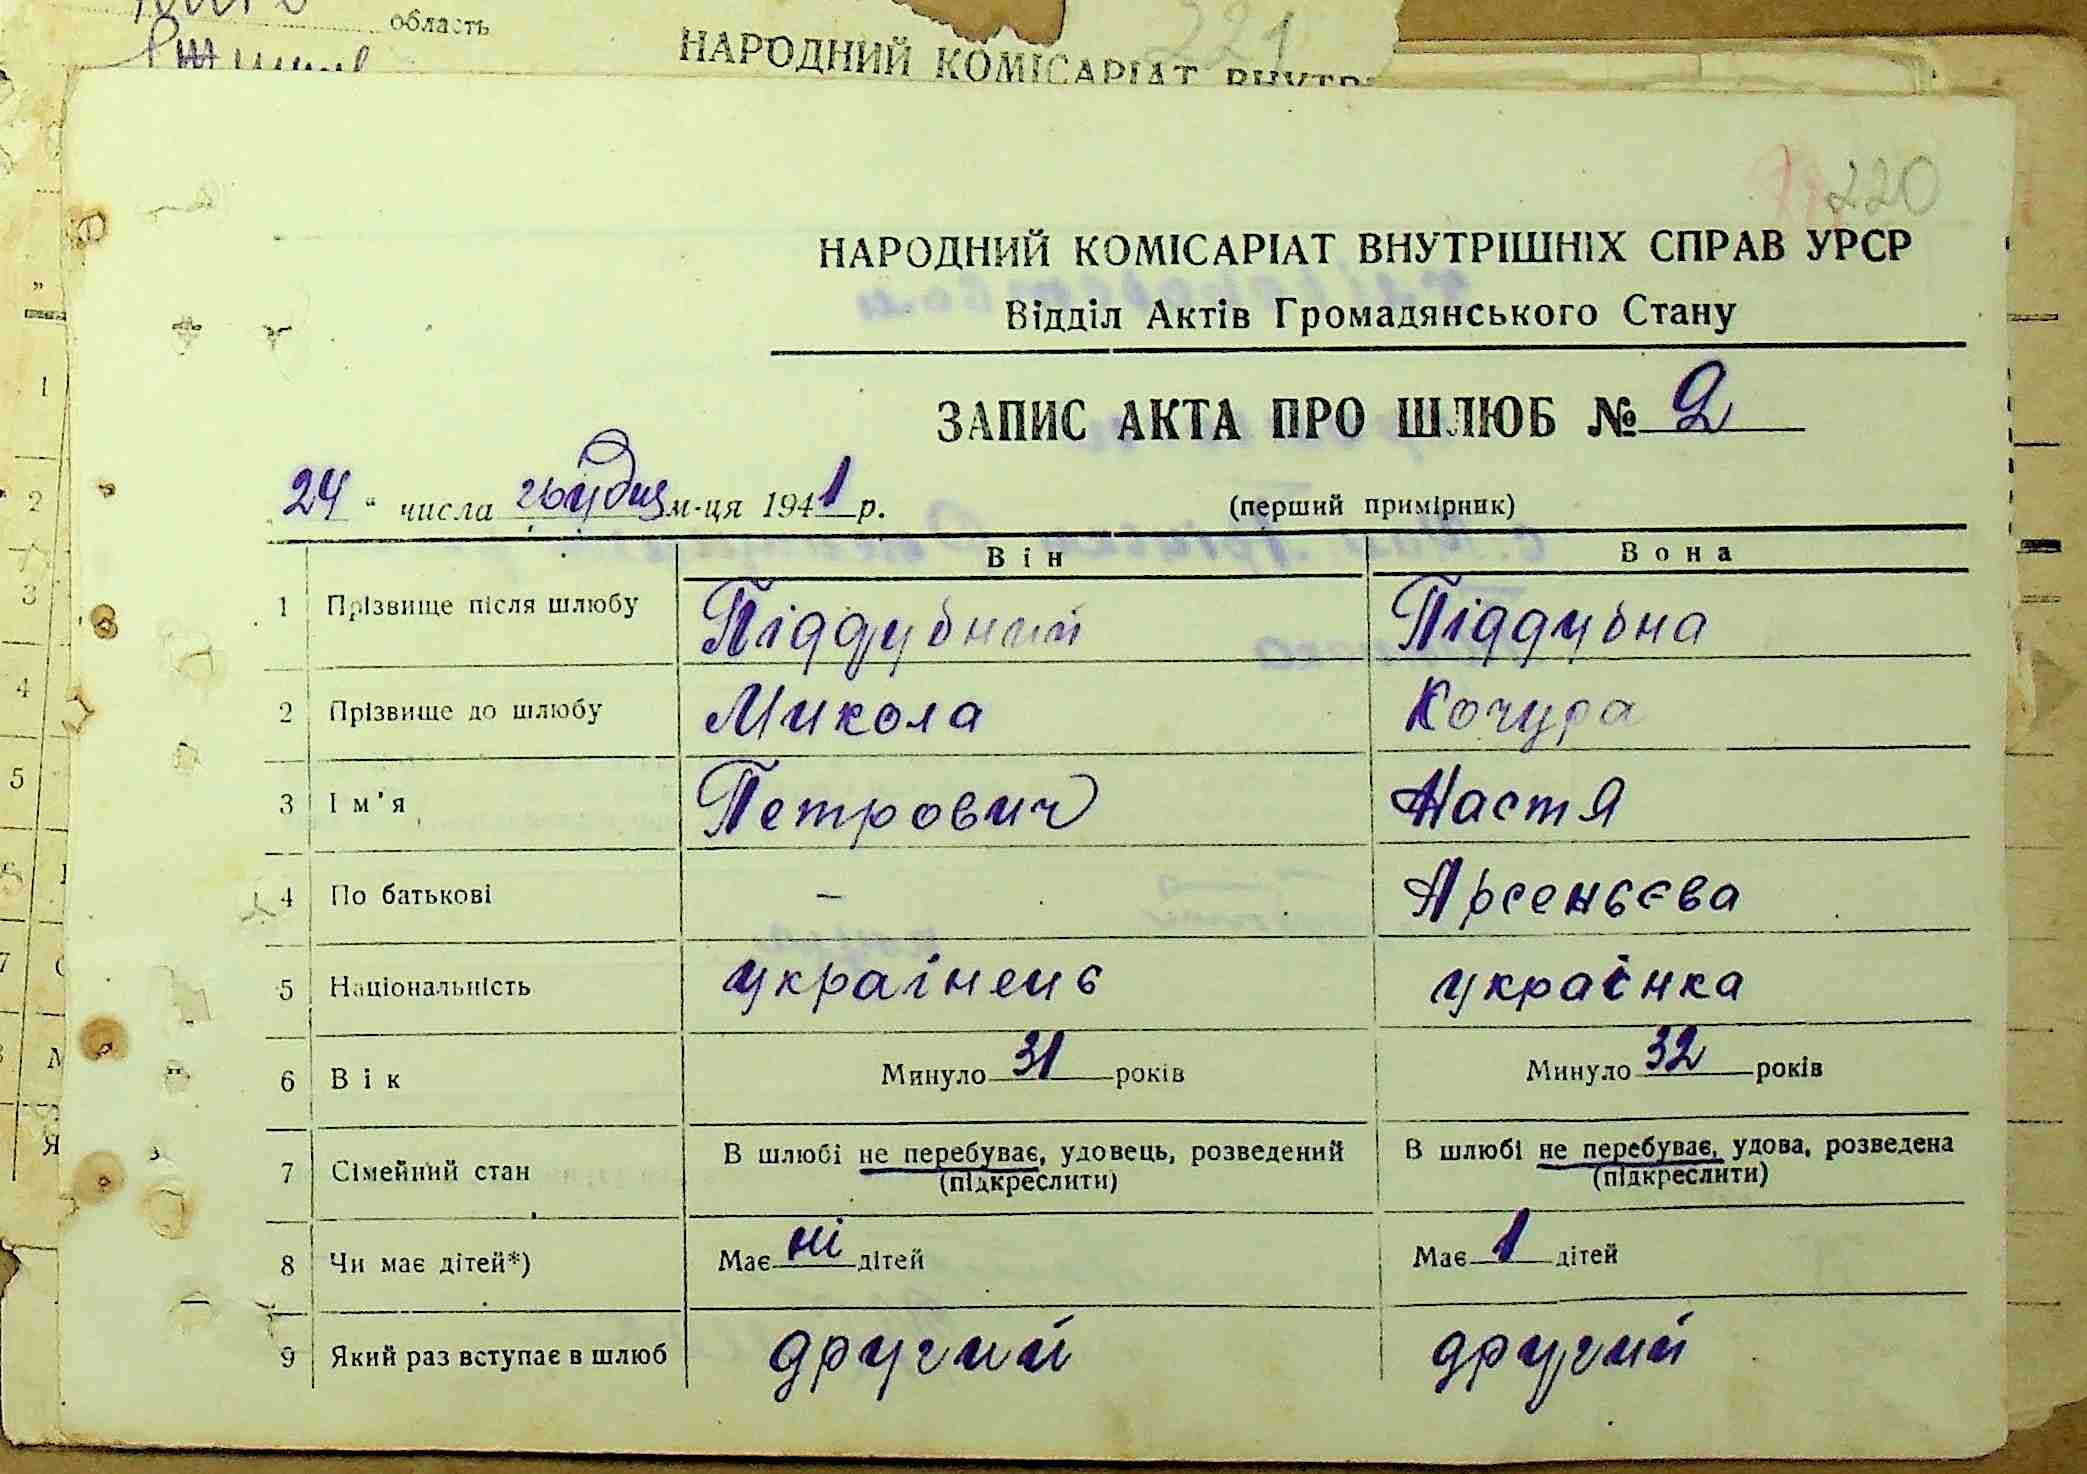 область
НАРОДНИЙ КОМІСАРІАТ ВНУТР
221
220
НАРОДНИЙ КОМІСАРІАТ ВНУТРІШНІХ СПРАВ УРСР
Відділ Актів Громадянського Стану
ЗАПИС АКТА ПРО ШЛЮБ № 2
24 " числа грудня м-ця 1941 р. (перший примірник)
Він Вона
1 Прізвище після шлюбу Піддубний Піддубна
2 Прізвище до шлюбу Микола Кочура
3 Ім'я Петрович Настя
4 По батькові – Арсеньєва
5 Національність українець українка
6 Вік Минуло 31 років Минуло 32 років
7 Сімейний стан В шлюбі не перебуває, удовець, розведений В шлюбі не перебуває, удова, розведена
(підкреслити) (підкреслити)
8 Чи має дітей*) Має ні дітей Має 1 дітей
9 Який раз вступає в шлюб другий другий